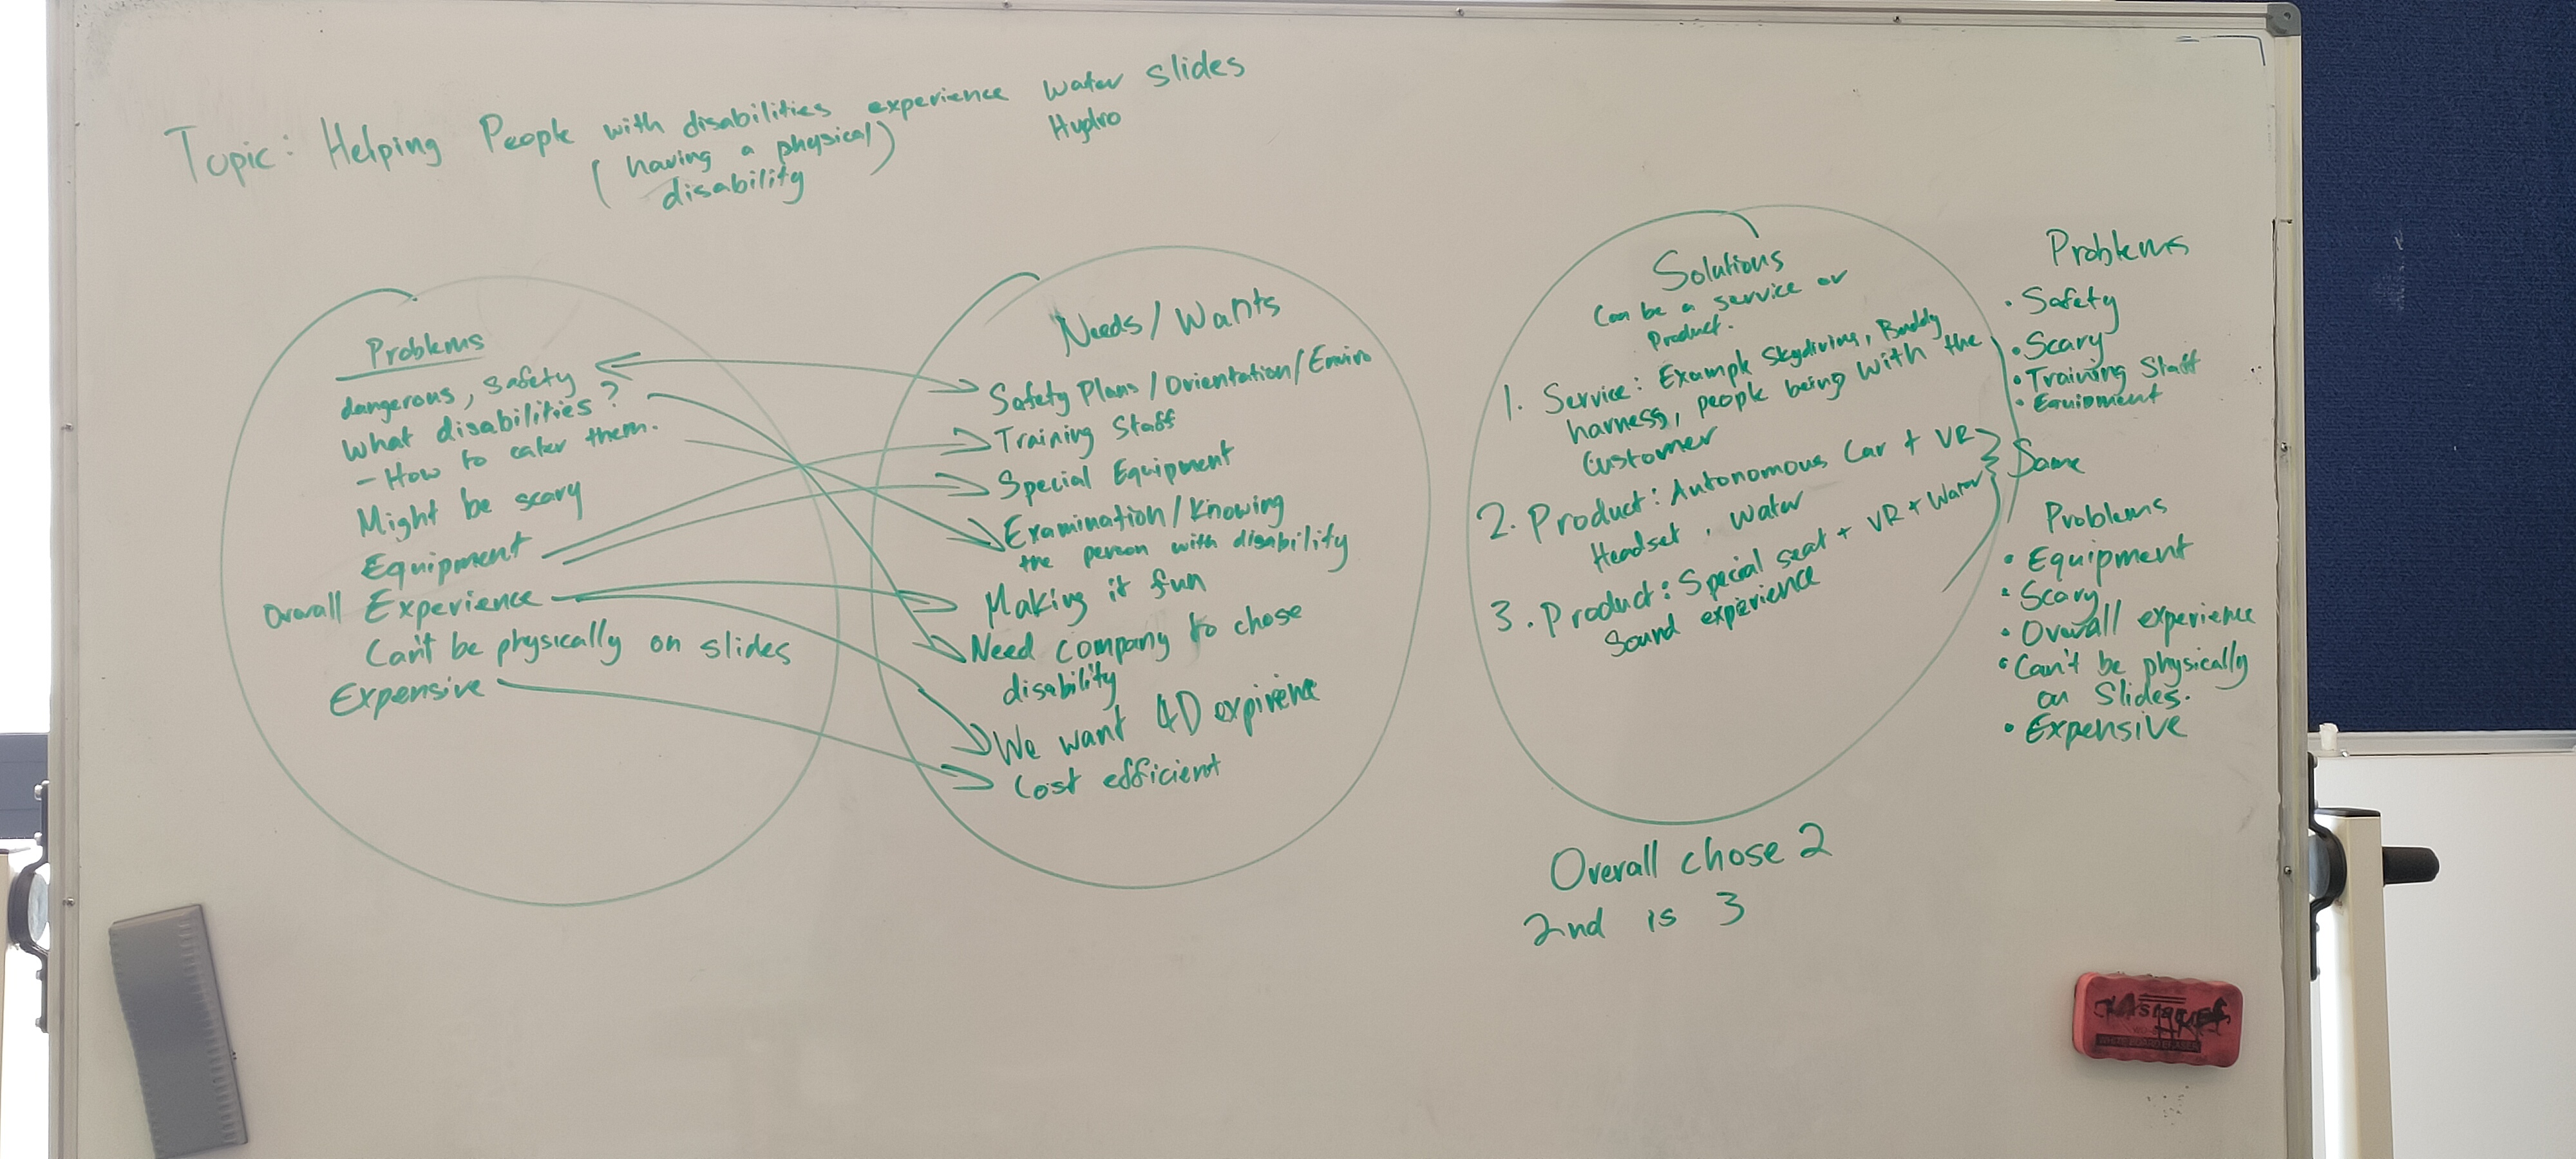 Topic: Helping People with disabilities experience water slides
(having a physical)
disability
Hydro
Problems
dangerous, safety
What disabilities?
- How to cater them.
Might be scary
Equipment
Overall Experience
Can't be physically on slides
Expensive
Needs/Wants
Safety Plans/Orientation/Enviro
Training Staff
Special Equipment
Examination/Knowing
the person with disability
Making it fun
Need company to chose
disability
We want 4D expirience
Cost efficient
Solutions
Can be a service or
Product.
1. Service: Example Skydiving, Buddy
harness, people being with the
Customer
2. Product: Autonomous Car + VR
Headset, Water
3. Product: Special seat + VR + Water
Sound experience
Overall chose 2
2nd is 3
Problems
• Safety
• Scary
• Training Staff
• Equipment
Same
Problems
• Equipment
• Scary
• Overall experience
• Can't be physically
on Slides.
• Expensive